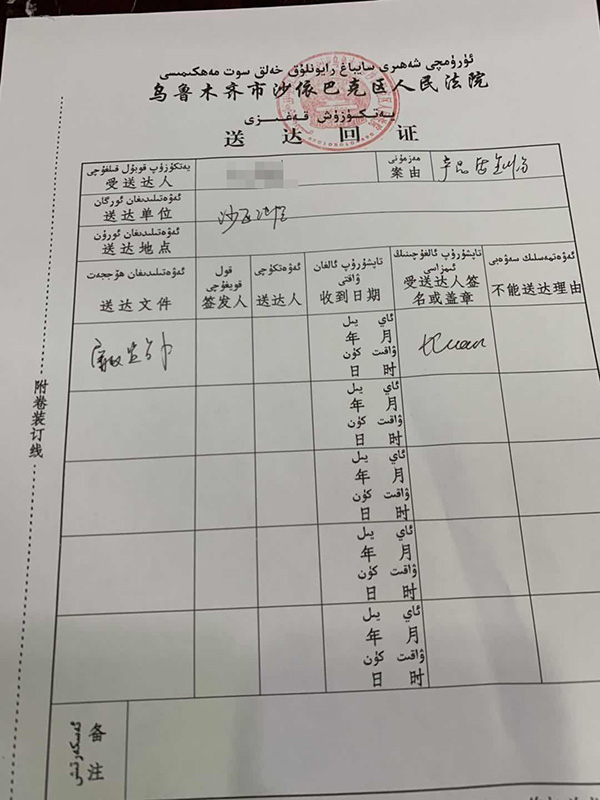 ئۈرۈمچى شەھىرى سايباغ رايونلۇق خەلق سوت مەھكىمىسى
乌鲁木齐市沙依巴克区人民法院
يەتكۈزۈش قەغىزى
送达回证
يەتكۈزۈپ قوبۇل قىلغۇچى
受送达人
مەزمۇنى
案由
ئەۋەتىلىدىغان ئورگان
送达单位
ئەۋەتىلىدىغان ئورۇن
送达地点
ئەۋەتىلىدىغان ھۆججەت
送达文件
قول قويغۇچى
签发人
ئەۋەتكۈچى
送达人
تاپشۇرۇپ ئالغان ۋاقتى
收到日期
تاپشۇرۇپ ئالغۇچىنىڭ ئىمزاسى
受送达人签
名或盖章
ئەۋەتمەسلىك سەۋەبى
不能送达理由
ئاي يىل
年 月
ۋاقىت كۈن
日 时
ئاي يىل
年 月
ۋاقىت كۈن
日 时
ئاي يىل
年 月
ۋاقىت كۈن
日 时
ئاي يىل
年 月
ۋاقىت كۈن
日 时
ئاي يىل
年 月
ۋاقىت كۈن
日 时
附卷装订线
ئەسكەرتىش
备注